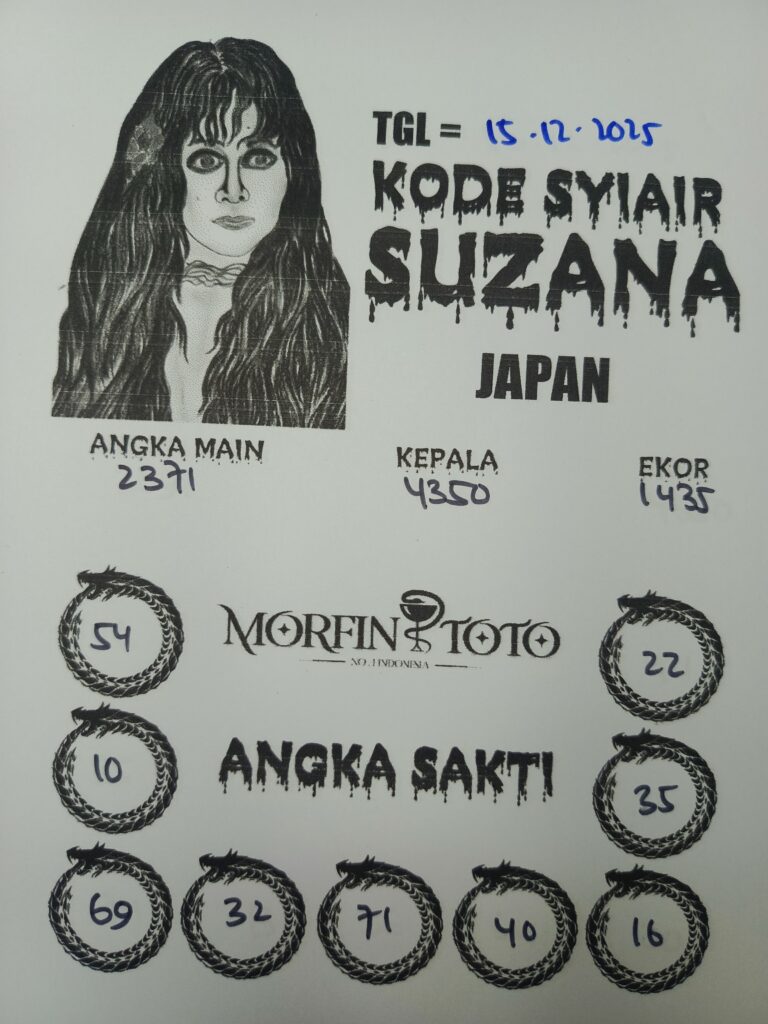 TGL = 15.12.2025
KODE SYIAIR
SUZANA
JAPAN
ANGKA MAIN
2371
KEPALA
4350
EKOR
1435
54
MORFIN TOTO
NO.1 INDONESIA
22
10
ANGKA SAKTI
35
69
32
71
40
16